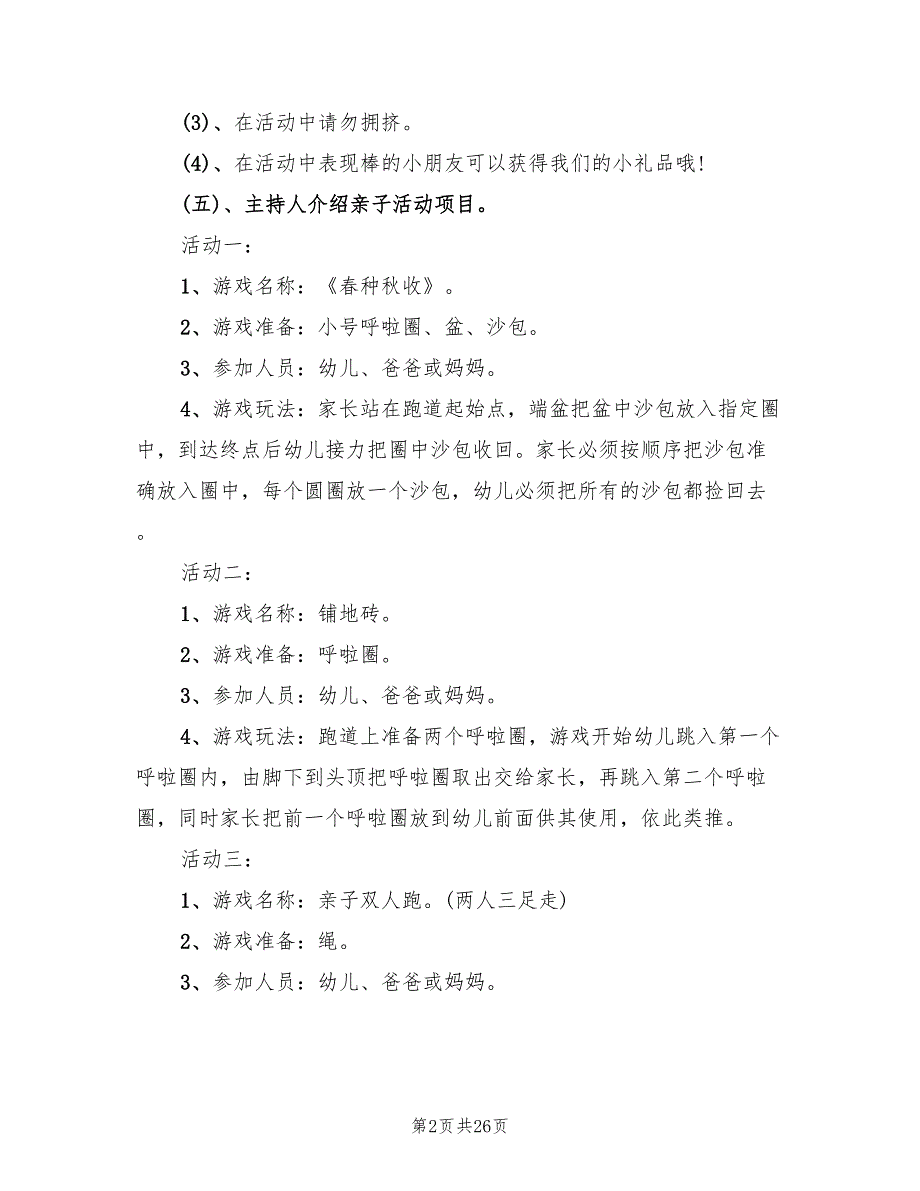 (3)、在活动中请勿拥挤。
(4)、在活动中表现棒的小朋友可以获得我们的小礼品哦!
(五)、主持人介绍亲子活动项目。
活动一：
1、游戏名称：《春种秋收》。
2、游戏准备：小号呼啦圈、盆、沙包。
3、参加人员：幼儿、爸爸或妈妈。
4、游戏玩法：家长站在跑道起始点，端盆把盆中沙包放入指定圈
中，到达终点后幼儿接力把圈中沙包收回。家长必须按顺序把沙包准
确放入圈中，每个圆圈放一个沙包，幼儿必须把所有的沙包都捡回去
。
活动二：
1、游戏名称：铺地砖。
2、游戏准备：呼啦圈。
3、参加人员：幼儿、爸爸或妈妈。
4、游戏玩法：跑道上准备两个呼啦圈，游戏开始幼儿跳入第一个
呼啦圈内，由脚下到头顶把呼啦圈取出交给家长，再跳入第二个呼啦
圈，同时家长把前一个呼啦圈放到幼儿前面供其使用，依此类推。
活动三：
1、游戏名称：亲子双人跑。(两人三足走)
2、游戏准备：绳。
3、参加人员：幼儿、爸爸或妈妈。
第2页共26页